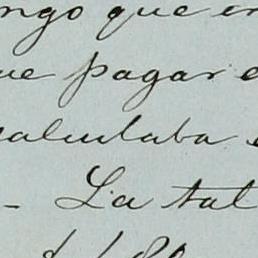 ngo que en
ue pagar e
calculaba e
- La tal